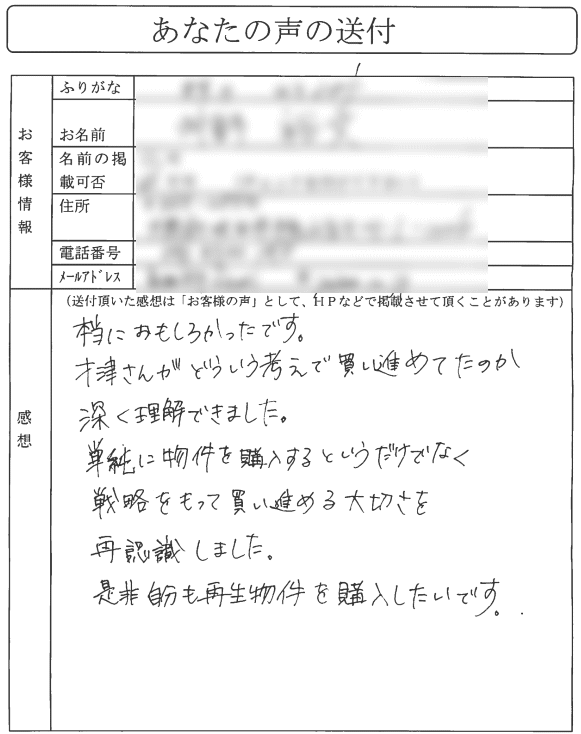 あなたの声の送付
お客様情報
ふりがな
お名前
名前の掲
載可否
住所
電話番号
ﾒｰﾙｱﾄﾞﾚｽ
感想
（送付頂いた感想は「お客様の声」として、HPなどで掲載させて頂くことがあります）
当におもしろかったです。
才津さんがどういう考えで買い進めてたのか
深く理解できました。
単純に物件を購入するというだけでなく
戦略をもって買い進める大切さを
再認識しました。
是非自分も再生物件を購入したいです。